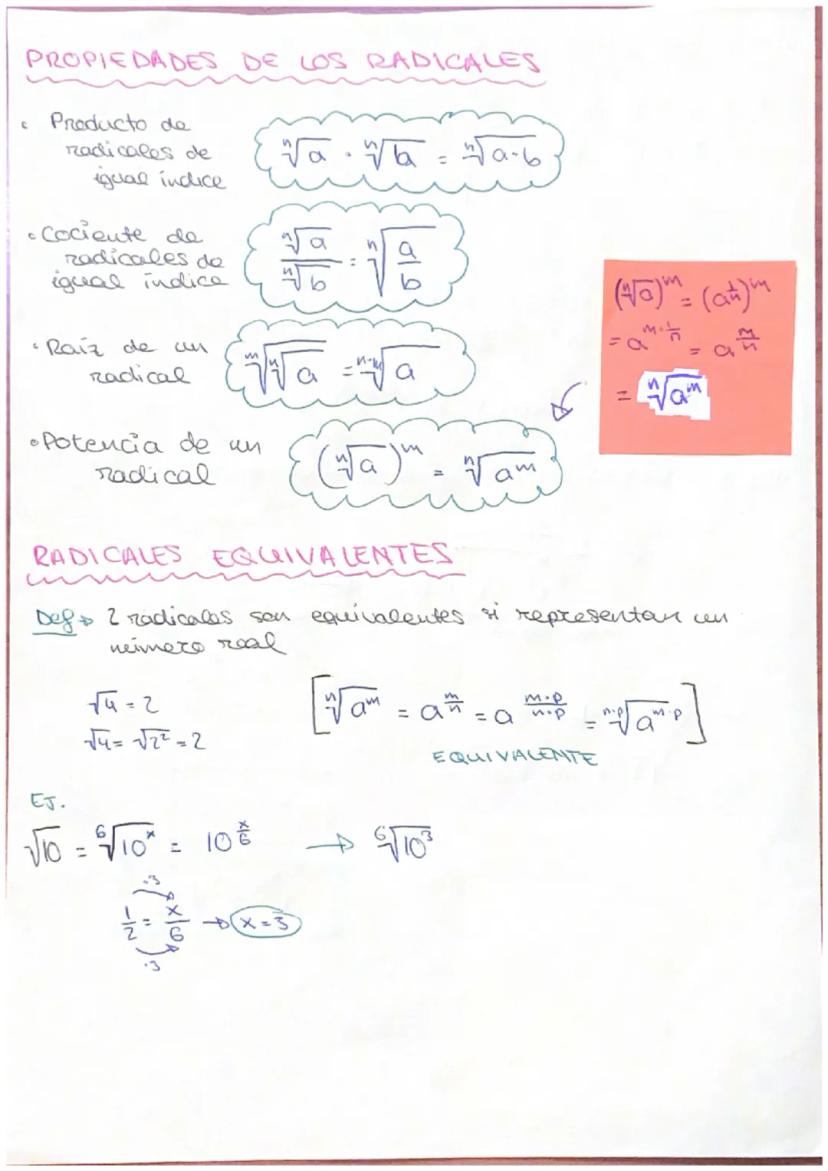 PROPIEDADES DE LOS RADICALES
• Producto de
radicales de
igual índice
ⁿ√a · ⁿ√b = ⁿ√a·b
• Cociente de
radicales de
igual índice
ⁿ√a / ⁿ√b = ⁿ√(a/b)
• Raíz de un
radical
ᵐ√ⁿ√a = ⁿ·ᵐ√a
• Potencia de un
radical
(ⁿ√a)ᵐ = ⁿ√aᵐ
(ⁿ√a)^m = (a^(1/n))^m
= a^(m·1/n) = a^(m/n)
= ⁿ√aᵐ
RADICALES EQUIVALENTES
Def → 2 radicales son equivalentes si representan un
número real
√4 = 2
√4 = √2² = 2
[ⁿ√aᵐ = a^(m/n) = a^(m·p/n·p) = ⁿ·ᵖ√a^(m·p)]
EQUIVALENTE
EJ.
√10 = ⁶√10ˣ = 10^(x/6) → ⁶√10³
·3
1/2 = x/6 → x = 3
·3